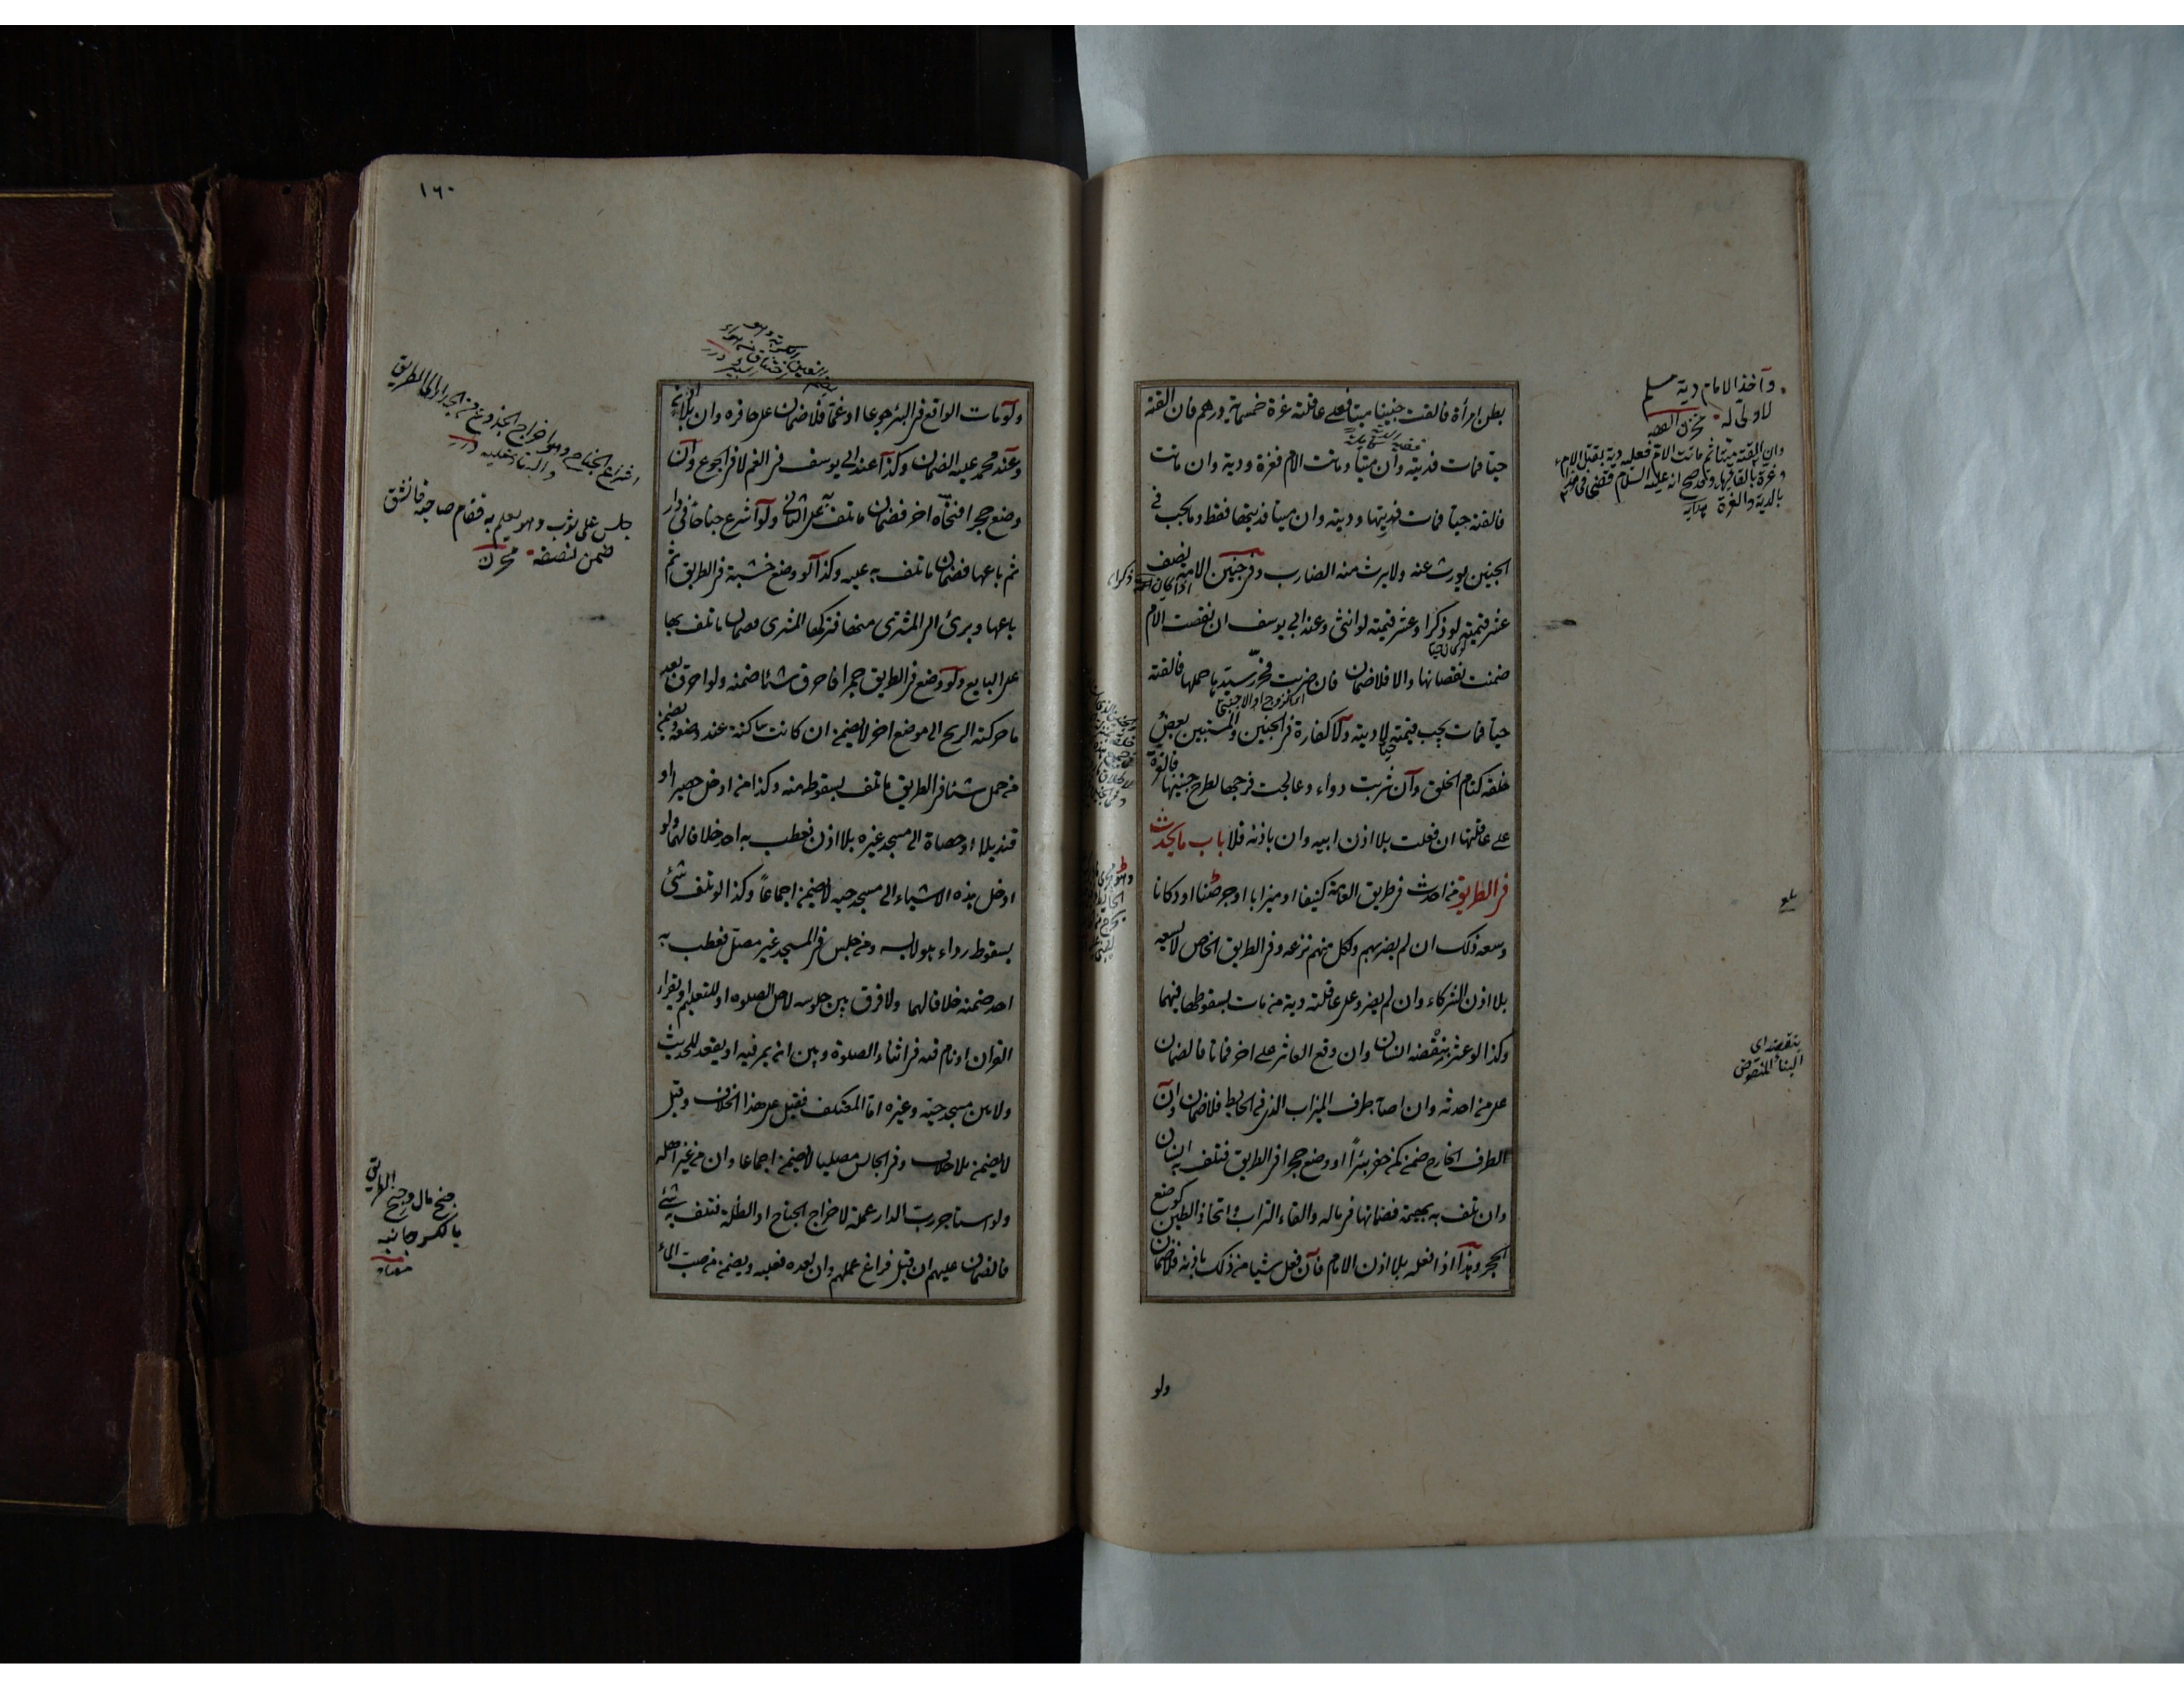 بطن امرأة فالقت جنينا ميتا فعلى عاقلته غرة خمسماية درهم فان القته
حيا فمات فديته وان ميتا وماتت الام فغرة ودية وان ماتت
فالقته حيا فمات فديتها وديته وان ميتا فديتها فقط وما يجب في
الجنين يورث عنه ولا يرث منه الضارب وفى جنين الامة نصف
عشر قيمته لو ذكرا وعشر قيمته لو انثى وعند ابى يوسف ان نقصت الام
ضمنت نقصانها والا فلا ضمان فان ضربت فحرر سيدها حملها فالقته
حيا فمات يجب قيمته لا ديته ولا كفارة فى الجنين والمستبين بعض
خلقه كتام الخلق وان شربت دواء وعالجت فرجها لطرح جنينها فالغرة
على عاقلتها ان فعلت بلا اذن ابيه وان باذنه فلا باب ما يحدث
فى الطريق من احدث فى طريق العامة كنيفا او ميزابا او جرصنا او دكانا
وسعه ذلك ان لم يضر بهم ولكل منهم نزعه وفى الطريق الخاص لا يسعه
بلا اذن الشركاء وان لم يضر وعلى عاقلته دية من مات بسقوطها فيهما
وكذا لو عثر بنقضه انسان وان وقع العاثر على اخر فماتا فالضمان
على من احدثه وان اصابه طرف الميزاب الذى فى الحايط فلا ضمان وان
الطرف الخارج ضمن كمن حفر بئرا او وضع حجرا فى الطريق فتلف به انسان
وان تلف به بهيمة فضمانها فى ماله والقاء التراب واتخاذ الطين كوضع
الحجر وهذا اذا فعله بلا اذن الامام فان فعل شيا من ذلك باذنه فلا ضمان
ولو
وآخذ الامام دية مسلم
لا ولى له
وان القته ميتا ثم ماتت الام فعليه دية بقتل الام
وغرة بالقائها وقد صح انه عليه السلام قضى فى هذا
بالدية والغرة هدايه
بنقضه اى
البناء المنقوض
١٦٠
ولو مات الواقع فى البئر جوعا او غما فلا ضمان على حافره وان بلا اذن
وعند محمد عليه الضمان وكذا عند ابى يوسف فى الغم لا فى الجوع وان
وضع حجرا فنحاه اخر فضمان ما تلف به على الثانى ولو اشرع جناحا فى دار
ثم باعها فضمان ما تلف به عليه وكذا لو وضع خشبة فى الطريق ثم
باعها وبرئ الى المشترى منها فتركها المشترى فضمان ما تلف بها
على البايع ولو وضع فى الطريق جمرا فاحرق شئا ضمنه ولو احرق بعد
ما حركته الريح الى موضع اخر لا يضمن ان كانت ساكنة عند وضعه ويضمن
من حمل شئا فى الطريق ما تلف بسقوطه منه وكذا من ادخل حصيرا او
قنديلا او حصاة الى مسجد غيره بلا اذن فعطب به احد خلافا لهما ولو
ادخل هذه الاشياء الى مسجد حيه لا يضمن اجماعا وكذا لو تلف شئ
بسقوط رداء هو لابسه ومن جلس فى المسجد غير مصل فعطب به
احد ضمنه خلافا لهما ولا فرق بين جلوسه لاجل الصلوة او للتعليم او يقراء
القران او نام فيه فى اثناء الصلوة وبين ان يمر فيه او يقعد للحديث
ولا بين مسجد حيه وغيره اما المعتكف فقيل على هذا الخلاف وقيل
لا يضمن بلا خلاف وفى الجالس مصليا لا يضمن اجماعا وان من غير اهله
ولو استاجر رب الدار عملة لاخراج الجناح او الظلة فتلف به شئ
فالضمان عليهم ان قبل فراغ عملهم وان بعده فعليه ويضمن من صب الماء
جلس على ثوب وهو يعلم به فقام صاحبه فانشق
ضمن نصفه
جنح مال وجنح الطريق
بالكسر جانبه